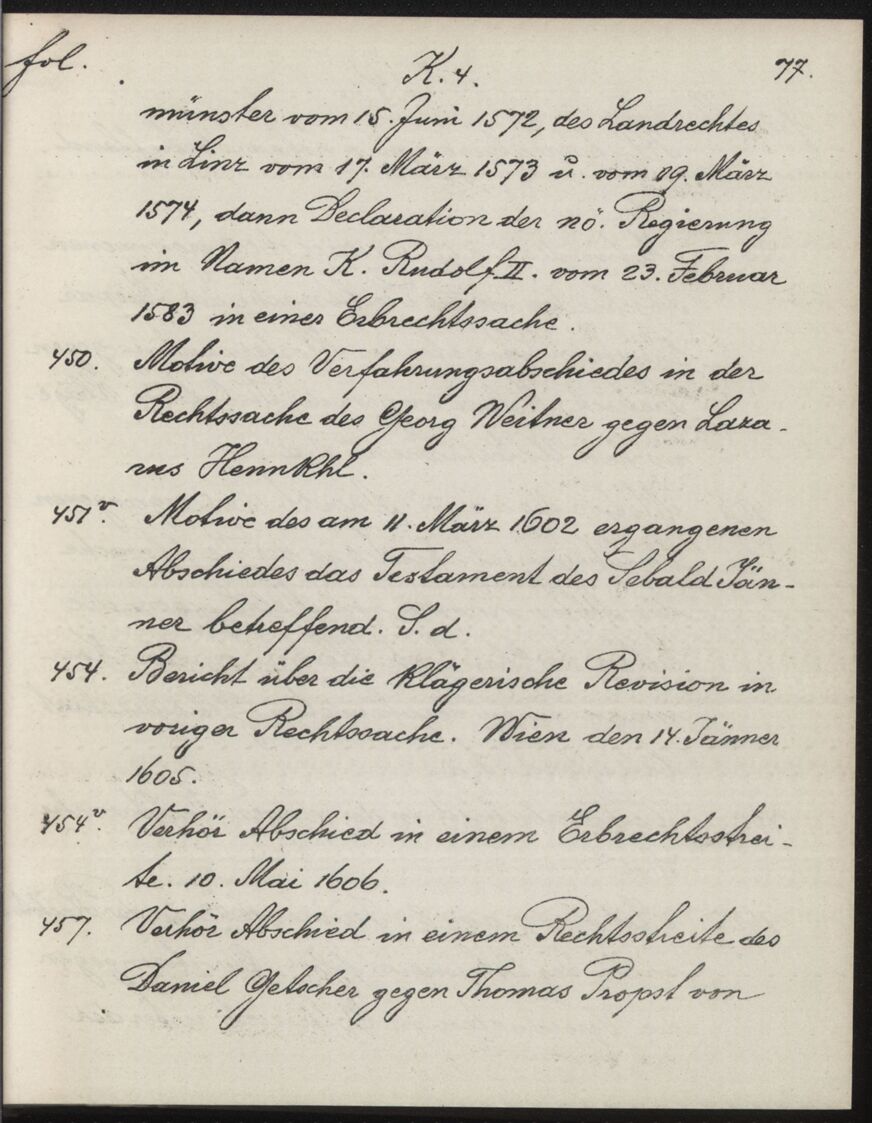 fol. K. 4. 77.
münster vom 15. Juni 1572, des Landrechtes
in Linz vom 17. März 1573 u. vom 19. März
1574, dann Declaration der nö. Regierung
im Namen K. Rudolf II. vom 23. Februar
1583 in einer Erbrechtssache.
450. Motive des Verfahrungsabschiedes in der
Rechtssache des Georg Weitner gegen Laza-
rus Hennkhl.
451v. Motive des am 11. März 1602 ergangenen
Abschiedes das Testament des Sebald Jän-
ner betreffend. S. d.
454. Bericht über die klägerische Revision in
voriger Rechtssache. Wien den 14. Jänner
1605.
454v. Verhör Abschied in einem Erbrechtsstrei-
te. 10. Mai 1606.
457. Verhör Abschied in einem Rechtsstreite des
Daniel Getscher gegen Thomas Propst von